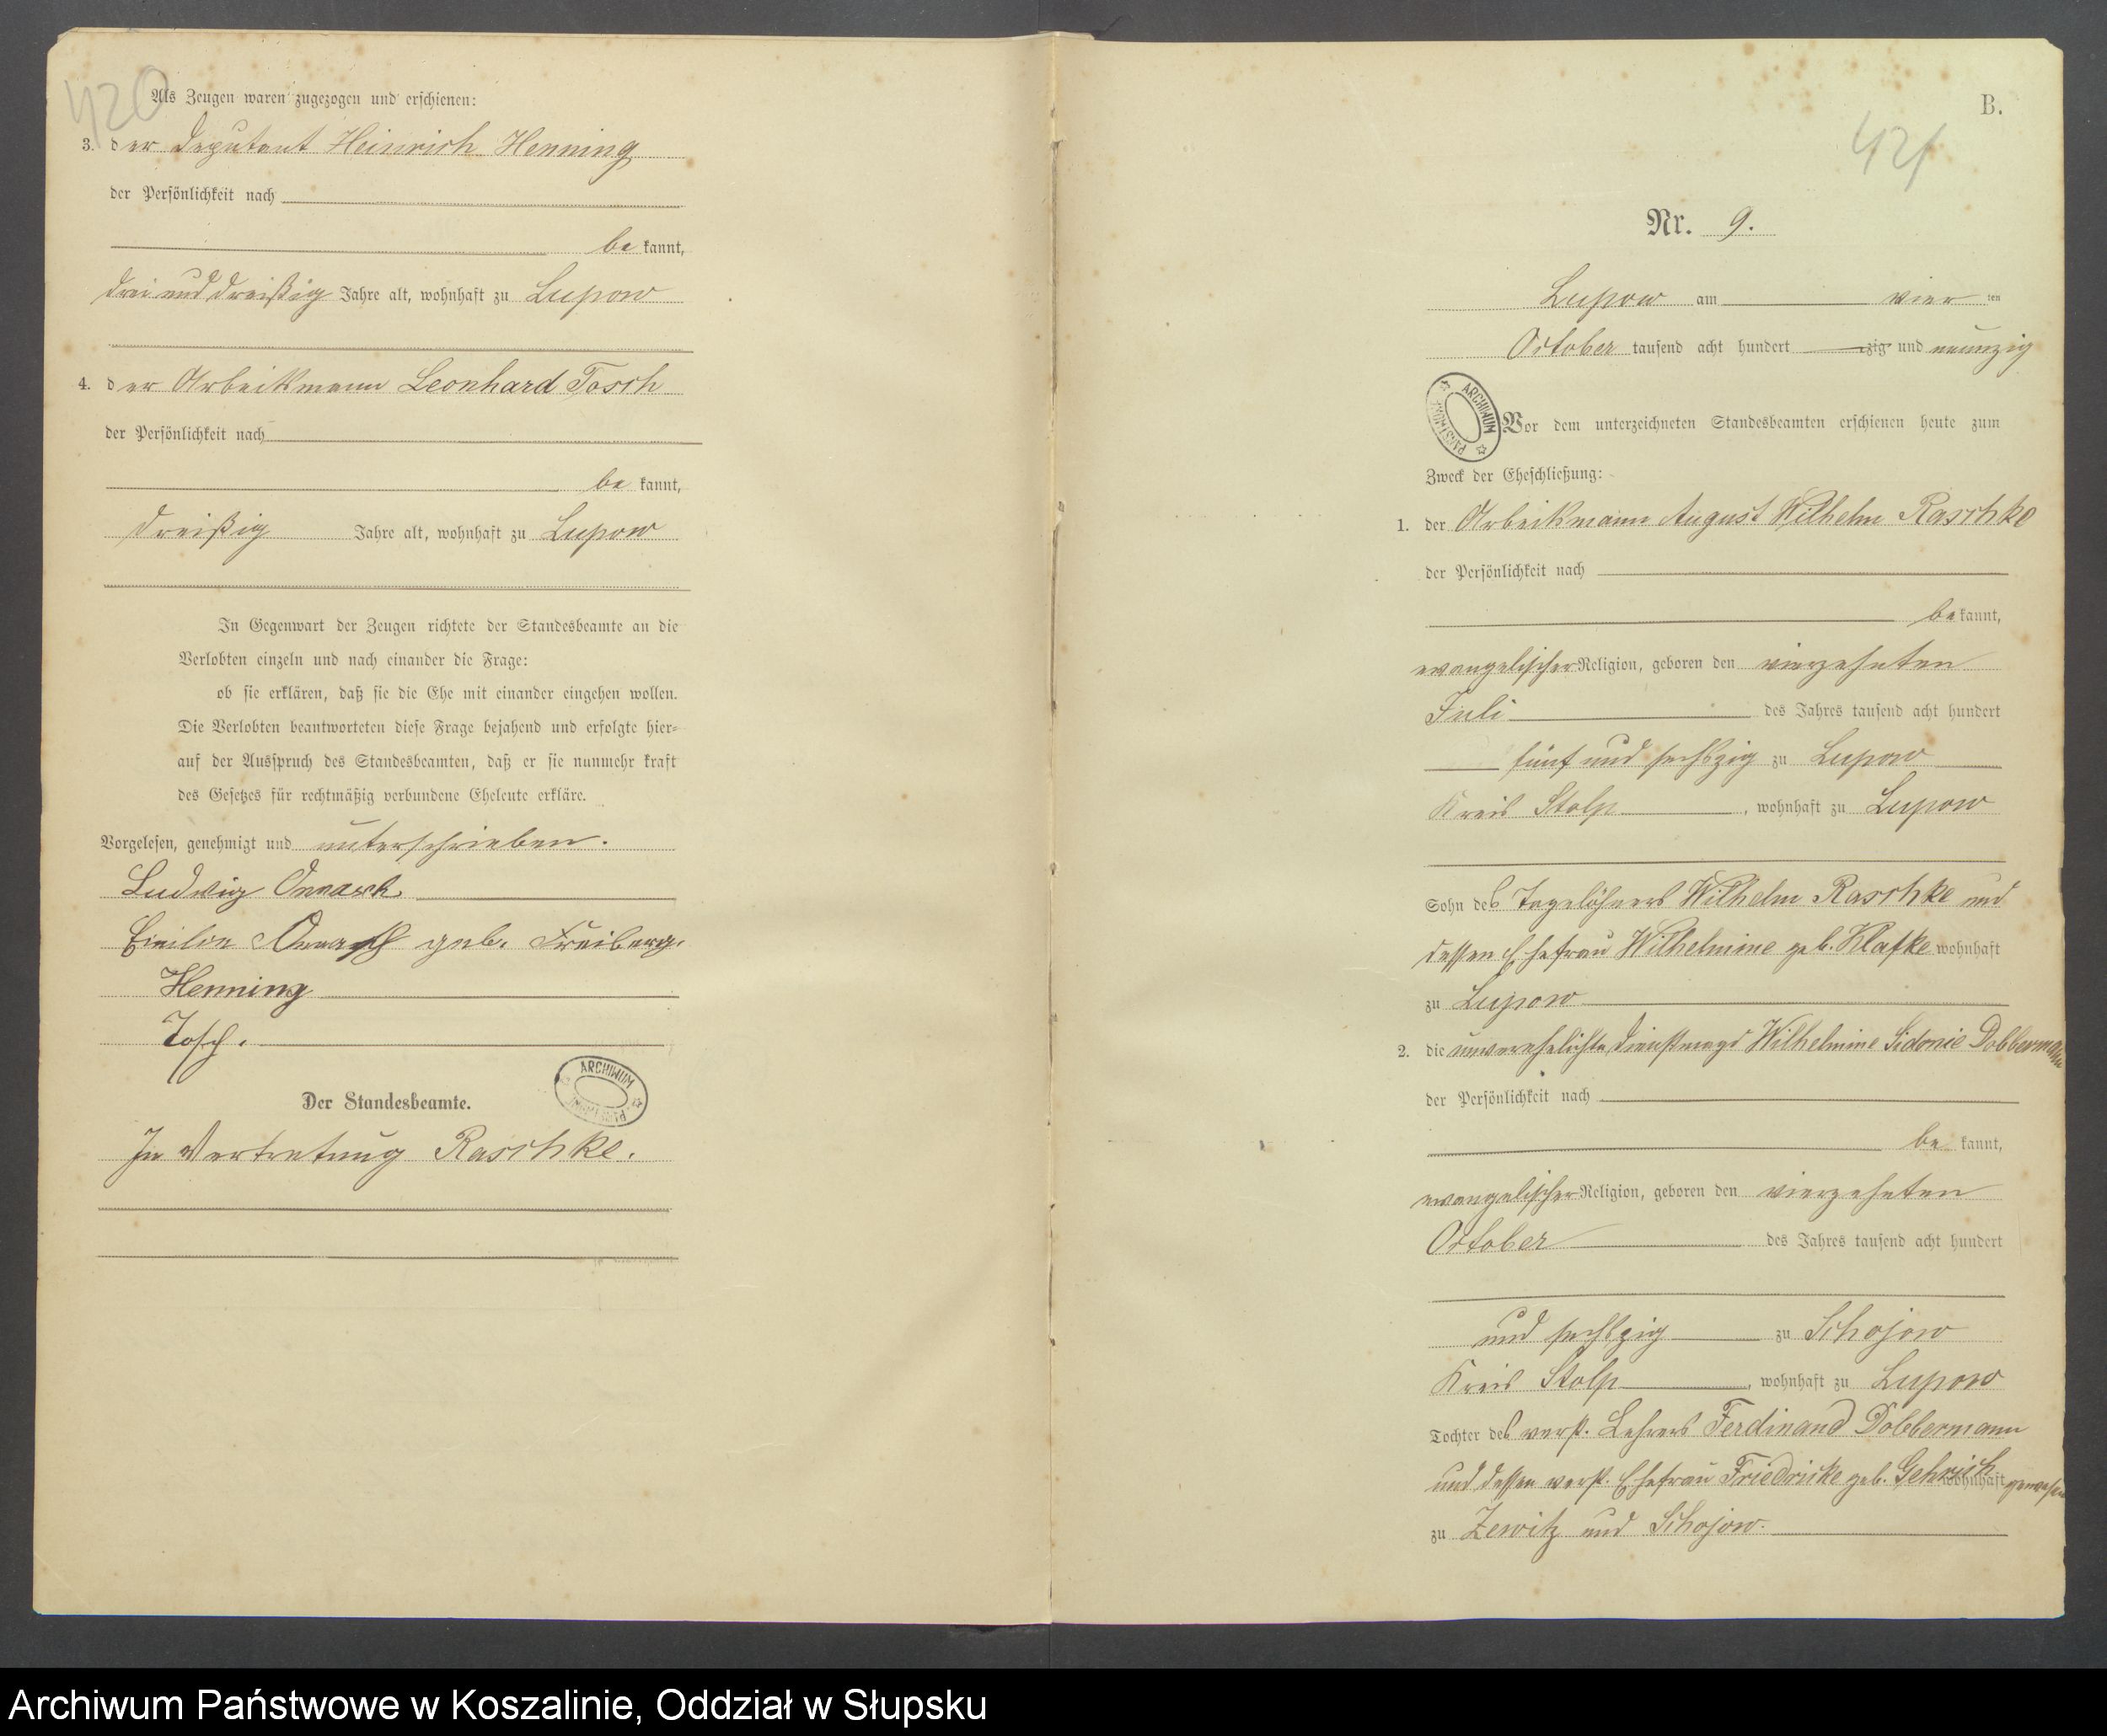 420
Als Zeugen waren zugezogen und erschienen:
3. der Deputant Heinrich Henning
der Persönlichkeit nach
bekannt,
drei und dreißig Jahre alt, wohnhaft zu Lupow
4. der Arbeitsmann Leonhard Tosch
der Persönlichkeit nach
bekannt,
dreißig Jahre alt, wohnhaft zu Lupow
In Gegenwart der Zeugen richtete der Standesbeamte an die
Verlobten einzeln und nach einander die Frage:
ob sie erklären, daß sie die Ehe mit einander eingehen wollen.
Die Verlobten beantworteten diese Frage bejahend und erfolgte hier-
auf der Ausspruch des Standesbeamten, daß er sie nunmehr kraft
des Gesetzes für rechtmäßig verbundene Eheleute erkläre.
Vorgelesen, genehmigt und unterschrieben.
Ludwig Onnasch
Emilie Onnasch geb. Freiberg.
Henning
Tosch.
ARCHIWUM
Der Standesbeamte.
In Vertretung Raschke.
B.
421
Nr. 9.
Lupow am vier ten
October tausend acht hundert zig und neunzig
ARCHIWUM
Vor dem unterzeichneten Standesbeamten erschienen heute zum
Zweck der Eheschließung:
1. der Arbeitsmann August Wilhelm Raschke
der Persönlichkeit nach
bekannt,
evangelischer Religion, geboren den vierzehnten
Juli des Jahres tausend acht hundert
fünf und sechszig zu Lupow
Kreis Stolp, wohnhaft zu Lupow
Sohn des Tagelöhners Wilhelm Raschke und
dessen Ehefrau Wilhelmine geb. Klafke wohnhaft
zu Lupow
2. die unverehelichte Dienstmagd Wilhelmine Sidonie Dobbermann
der Persönlichkeit nach
bekannt,
evangelischer Religion, geboren den vierzehnten
October des Jahres tausend acht hundert
und sechszig zu Schojow
Kreis Stolp, wohnhaft zu Lupow
Tochter des verst. Lehrers Ferdinand Dobbermann
und dessen verst. Ehefrau Friedricke geb. Gehrich wohnhaft gewesen
zu Zewitz und Schojow.
Archiwum Państwowe w Koszalinie, Oddział w Słupsku